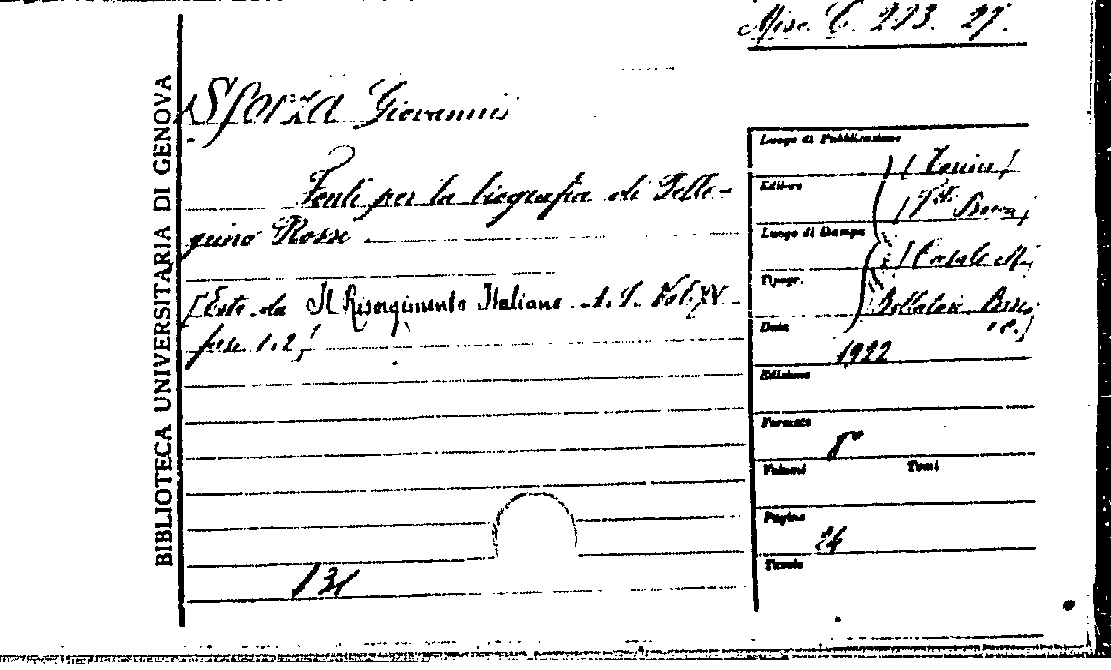 Misc. C. 223. 27.
BIBLIOTECA UNIVERSITARIA DI GENOVA
Sforza Giovanni
Fonti per la biografia di Pelle-
grino Rossi
[Estr. da Il Risorgimento Italiano Vol. XV
fasc. 1.2]
131
Luogo di Pubblicazione [Torino]
Editore [F.lli Bocca]
Luogo di Stampa [Casale M.
Tipogr.
Data 1922
Edizione
Formato 8°
Volumi Tomi
Pagine 24
Tavole